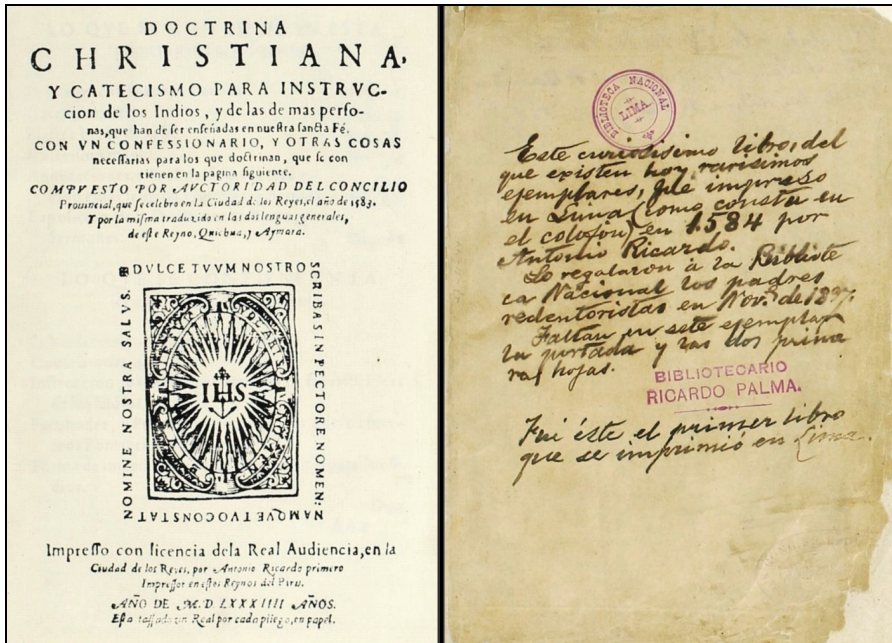 DOCTRINA
CHRISTIANA,
Y CATECISMO PARA INSTRVC-
cion de los Indios, y de las de mas perſo-
nas, que han de ſer enſeñadas en nueſtra ſancta Fé.
CON VN CONFESSIONARIO, Y OTRAS COSAS
neceſſarias para los que doctrinan, que ſe con
tienen en la pagina ſiguiente.
COMPVESTO POR AVCTORIDAD DEL CONCILIO
Prouincial, que ſe celebro en la Ciudad de los Reyes, el año de 1583.
Y por la miſma traduzido en las dos lenguas generales,
de eſte Reyno, Quichua, y Aymara.
DVLCE TVVM NOSTRO
SCRIBAS IN PECTORE NOMEN:
NAMQVE TVO CONSTAT
NOMINE NOSTRA SALVS.
IHS
Impreſſo con licencia dela Real Audiencia, en la
Ciudad de los Reyes, por Antonio Ricardo primero
Impreſſor en eſtos Reynos del Piru.
AÑO DE M.D LXXXIIII AÑOS.
Eſta taſſado vn Real por cada pliego, en papel.
BIBLIOTECA NACIONAL
LIMA
Este curiosisimo libro, del
que existen hoy rarisimos
ejemplares, fué impreso
en Lima (como consta en
el colofon) en 1584 por
Antonio Ricardo.
Lo regalaron á la Bibliote
ca Nacional los padres
redentoristas en Nov.e de 1897.
Faltan en este ejemplar
la portada y las dos prime
ras hojas.
BIBLIOTECARIO
RICARDO PALMA.
Fué éste el primer libro
que se imprimió en Lima.